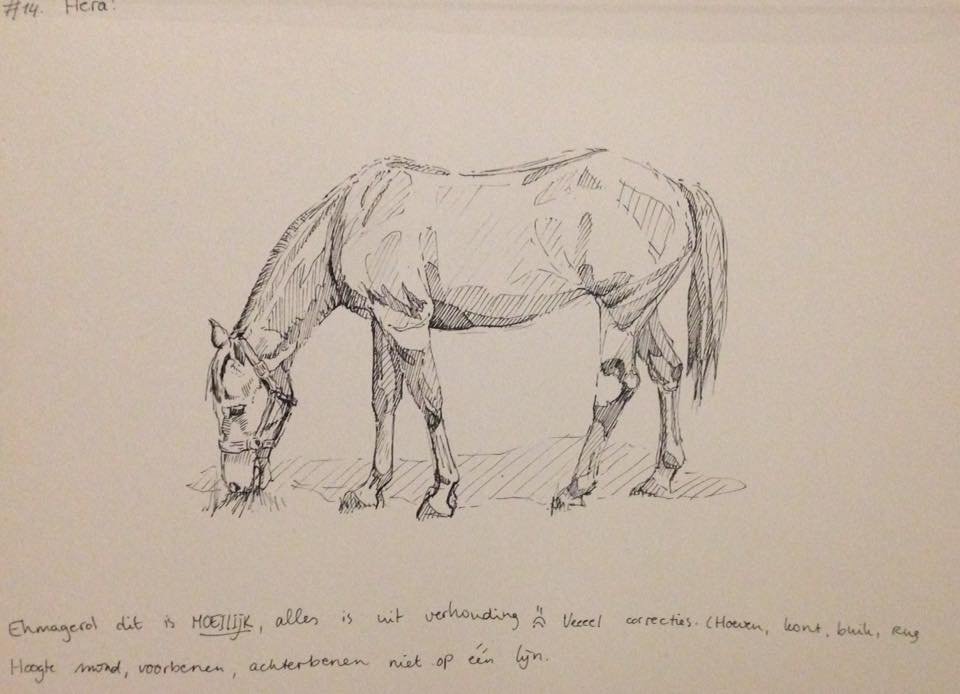 #14. Hera!
Ehmagerd dit is MOEILIJK, alles is uit verhouding ☹ Veeel correcties. (Hoeven, kont, buik, rug
Hoogte mond, voorbenen, achterbenen niet op één lijn.